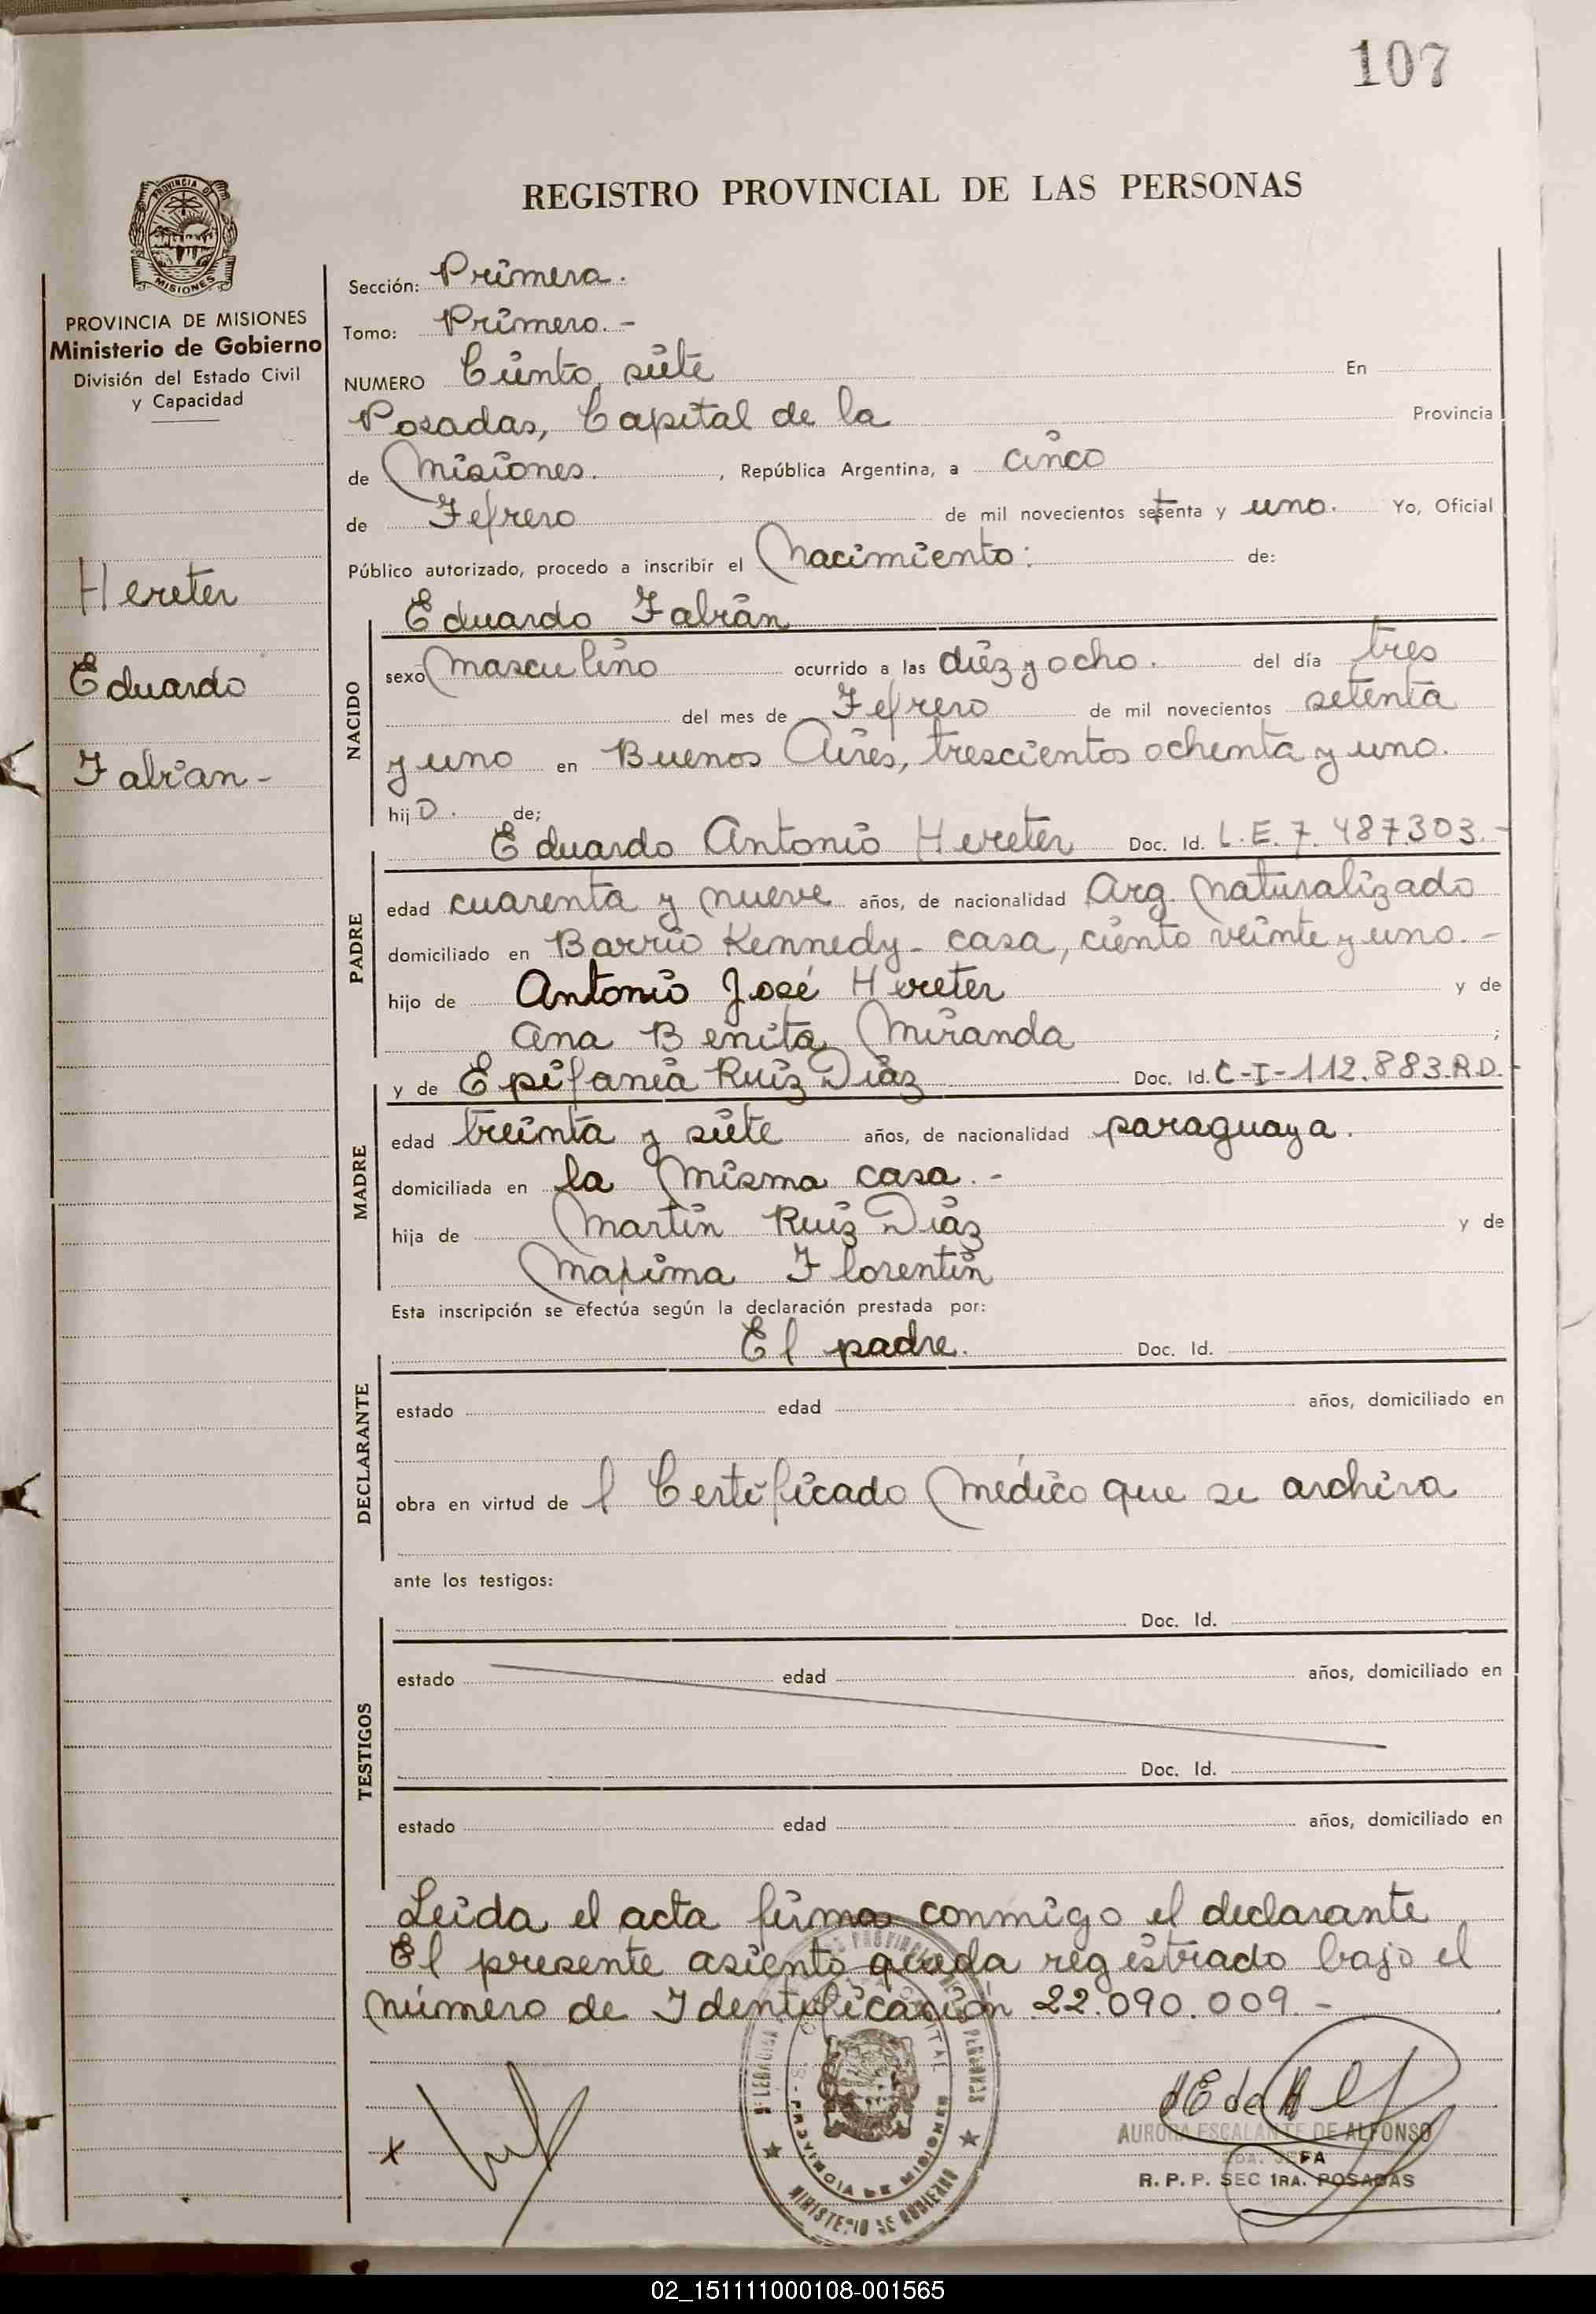 107
REGISTRO PROVINCIAL DE LAS PERSONAS
PROVINCIA DE
MISIONES
PROVINCIA DE MISIONES
Ministerio de Gobierno
División del Estado Civil
y Capacidad
Hereter
Eduardo
Fabian -
Sección: Primera.
Tomo: Primero. -
NUMERO Ciento siete En
Posadas, Capital de la Provincia
de Misiones. , República Argentina, a cinco
de Febrero de mil novecientos setenta y uno. Yo, Oficial
Público autorizado, procedo a inscribir el Nacimiento: de:
Eduardo Fabián
NACIDO
sexo masculino ocurrido a las diéz y ocho. del día tres
del mes de Febrero de mil novecientos setenta
y uno en Buenos Aires, trescientos ochenta y uno.
hijo. de;
PADRE
Eduardo Antonio Hereter Doc. Id. L.E. 7.487.303.-
edad cuarenta y nueve años, de nacionalidad Arg. Naturalizado
domiciliado en Barrio Kennedy - casa, ciento veinte y uno. -
hijo de Antonio José Hereter y de
Ana Benita Miranda ;
MADRE
y de Epifania Ruiz Diaz Doc. Id. C-I-112.883.R.D.
edad treinta y siete años, de nacionalidad paraguaya.
domiciliada en la misma casa. -
hija de Martin Ruiz Diaz y de
Maxima Florentin
Esta inscripción se efectúa según la declaración prestada por:
DECLARANTE
El padre. Doc. Id.
estado edad años, domiciliado en
obra en virtud de l Certificado Médico que se archiva
ante los testigos:
TESTIGOS
Doc. Id.
estado edad años, domiciliado en
Doc. Id.
estado edad años, domiciliado en
Leida el acta firma conmigo el declarante
El presente asiento queda registrado bajo el
número de Identificación 22.090.009. -
PROVINCIA DE MISIONES
MINISTERIO DE GOBIERNO
AURORA ESCALANTE DE ALFONSO
R. P. P. SEC 1RA. POSADAS
02_151111000108-001565